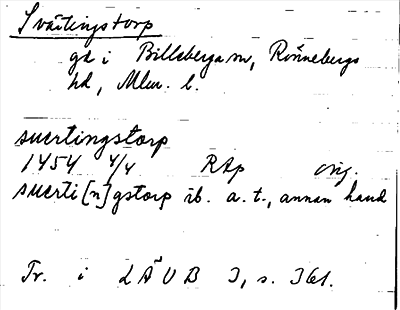 Svärtingstorp
gd i Billeberga sn, Rönnebergs
hd, Mlm. l.
suertingstorp
1454 4/4 RAp orig.
suerti[n]gstorp ib. a. t., annan hand
Tr. i LÄUB 3, s. 361.